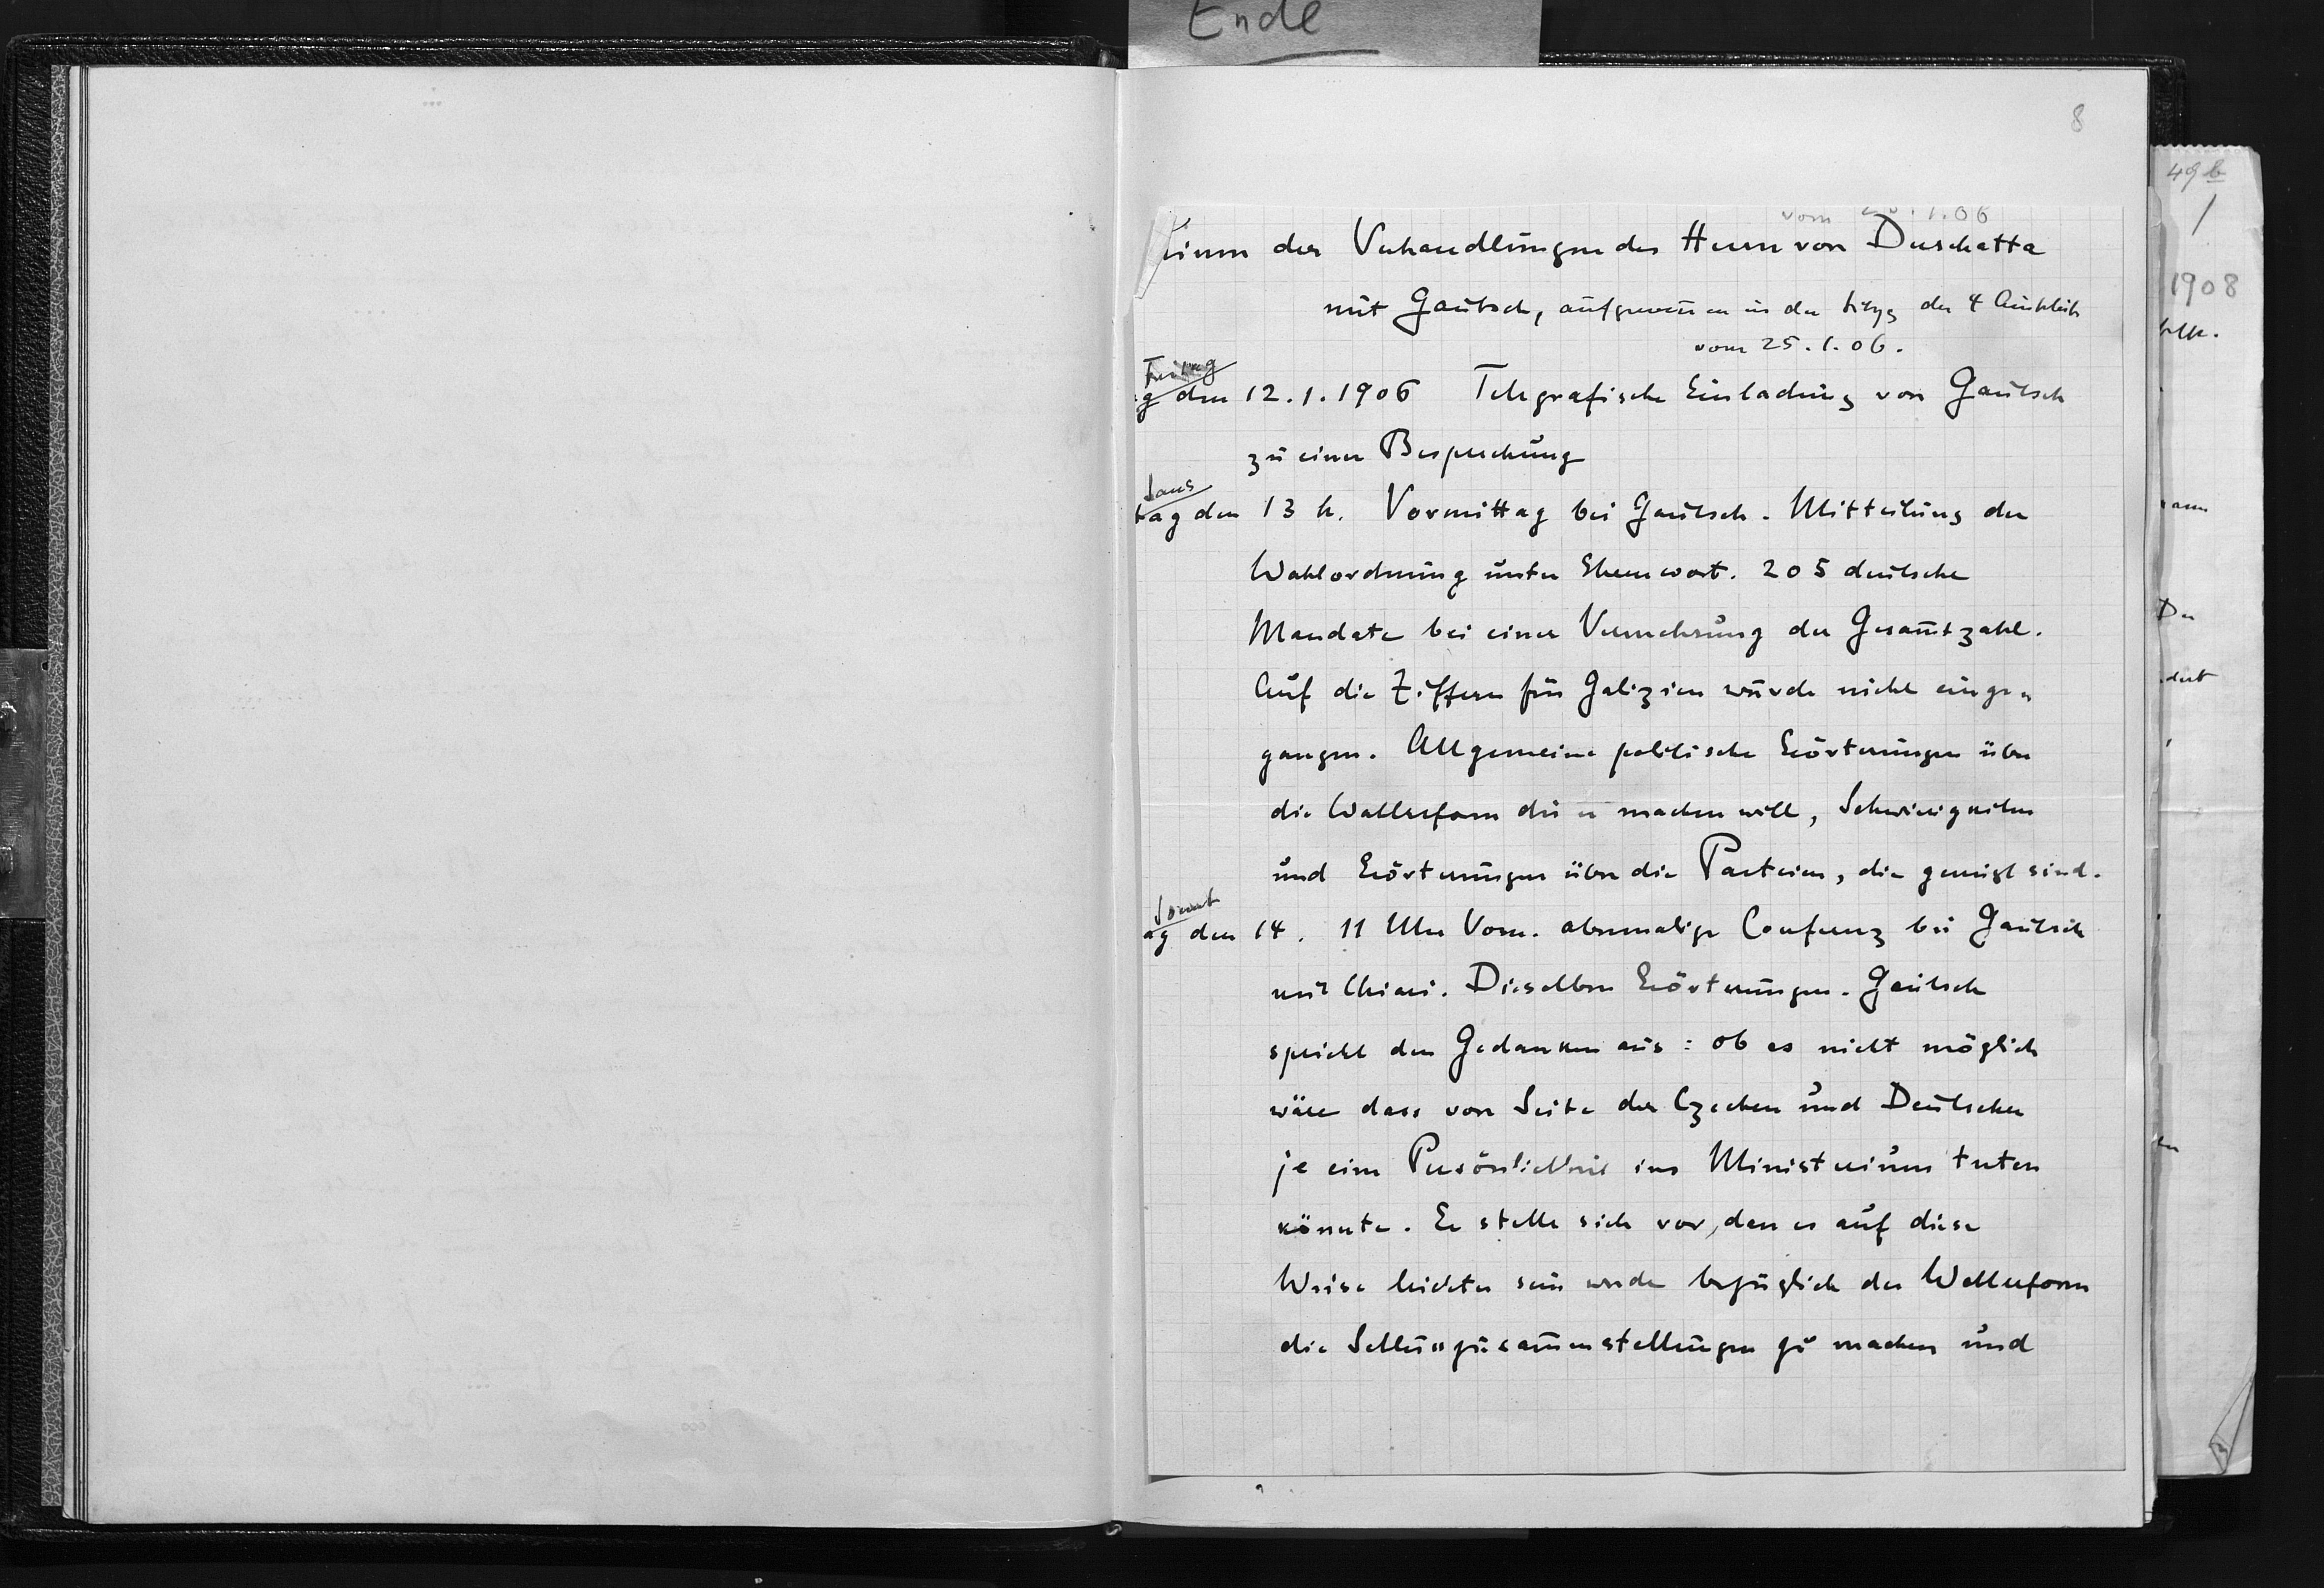 Ende
8
vom 1.06
der Verhandlungen des Herrn von Derschatta
mit Gautsch, aufgewiesen in der der 4
vom 25.1.06.
Freitag
g den 12.1.1906 Telegrafische Einladung von Gautsch
zu einer Besprechung
Sams
tag den 13 h. Vormittag bei Gautsch. Mitteilung der
Wahlordnung unter Ehrenwort. 205 deutsche
Mandate bei einer Vermehrung der Gesamtzahl.
Auf die Ziffern für Galizien wurde nicht einge=
gangen. Allgemeine politische Erörterungen über
die Wahlreform die er machen will, Schwierigkeiten
und Erörterungen über die Parteien, die geneigt sind.
ag den 14. 11 Uhr Vorm. abermalige Conferenz bei Gautsch
mit Chiari. Dieselben Erörterungen. Gautsch
spricht den Gedanken aus: ob es nicht möglich
wäre dass von Seite der Czechen und Deutschen
je eine Persönlichkeit ins Ministerium treten
könnte. Er stelle sich vor, dass es auf diese
Weise leichter sein werde bezüglich der Wahlreform
die zu machen und
49b
/
1908
Der